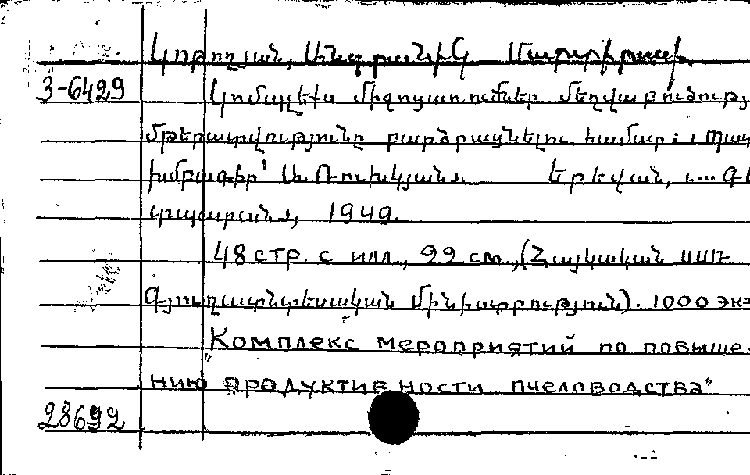 Կոբոլյան, Անդրանիկ Մարտիրոսի.
3-6429
Կոմպլեքս միջոցառումներ մեղվաբուծությ
մթերատվությունը բարձրացնելու համար:
խմբագիր՝ Երևան,
1949.
48 стр. с илл., 22 см., (Հայկական ՍՍՌ
Գյուղատնտեսական Մինիստրություն). 1000 экз
"Комплекс мероприятий по повыше-
нию продуктивности пчеловодства"
28692